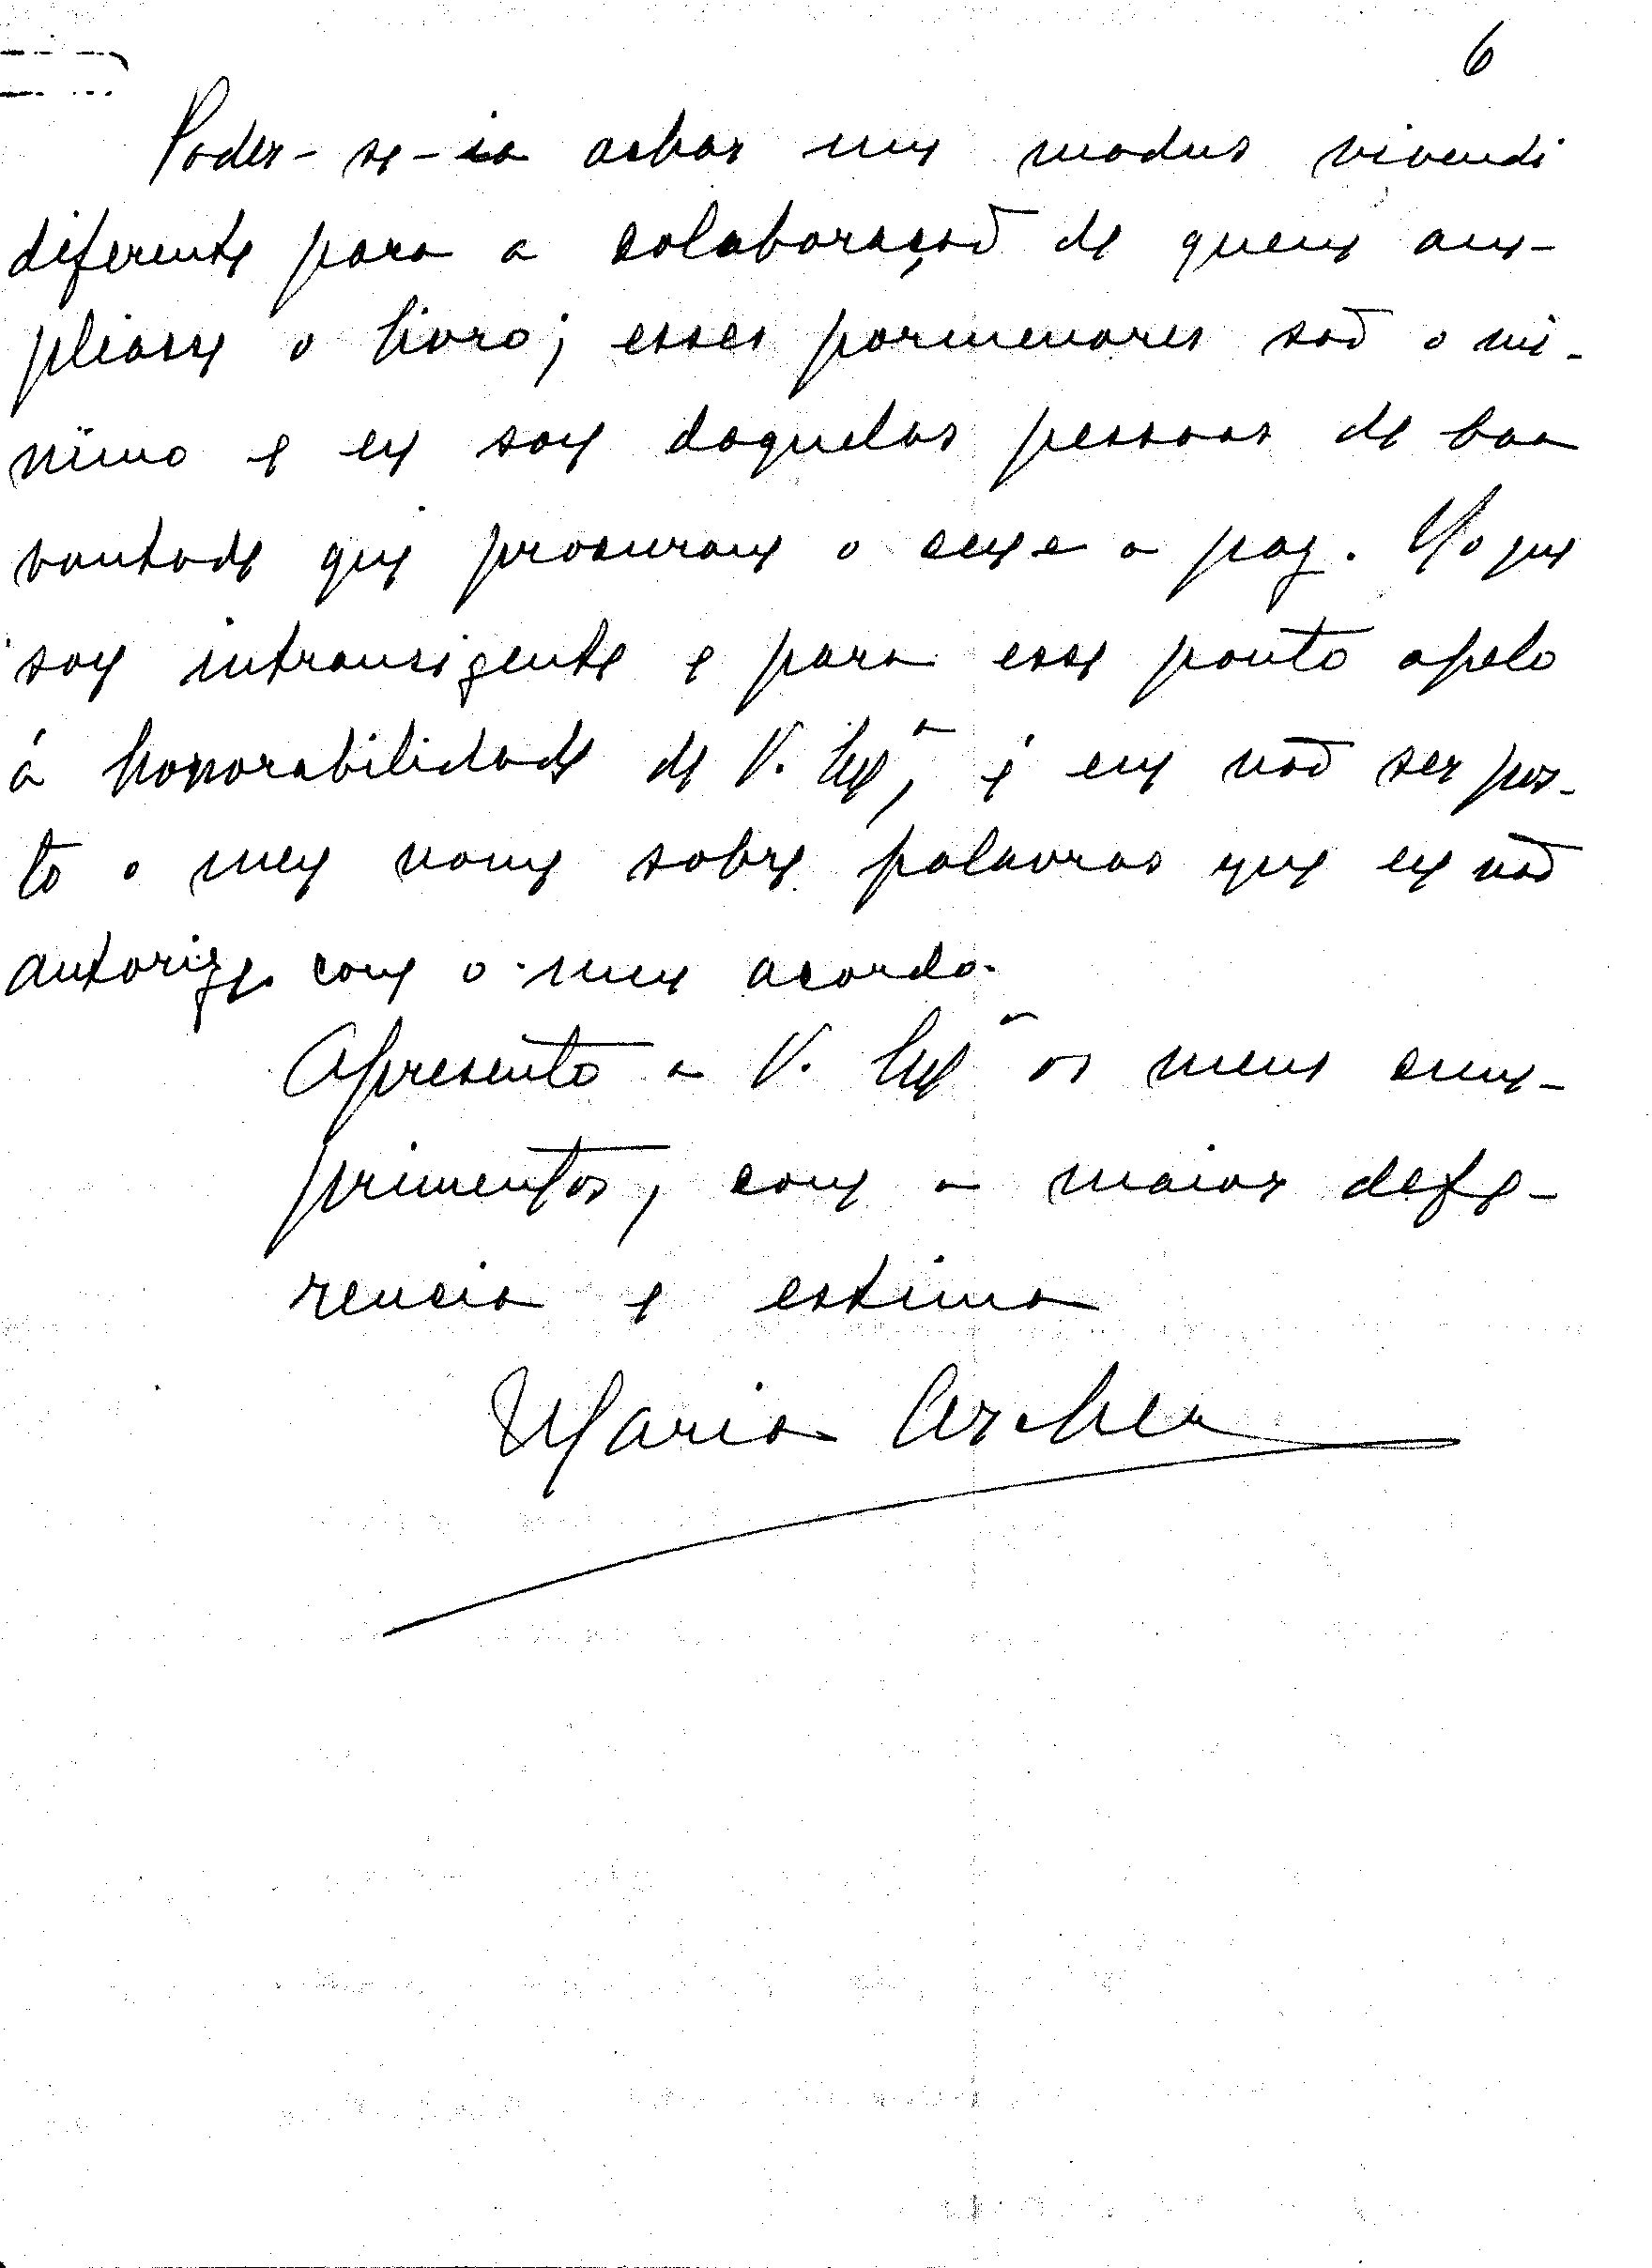 6
Poder-se-ia achar um modus vivendi
diferente para a colaboração de quem am-
pliasse o livro; esses pormenores são o mí-
nimo e eu sou daquelas pessoas de boa
vontade que procuram o a paz. No que
sou intransigente e para esse ponto apelo
á honorabilidade de V. Exª, é em não ser pos-
to o meu nome sobre palavras que eu não
autorize com o meu acordo.
Apresento a V. Exª os meus cum-
primentos, com a maior defe-
rencia e estima
Maria Archer